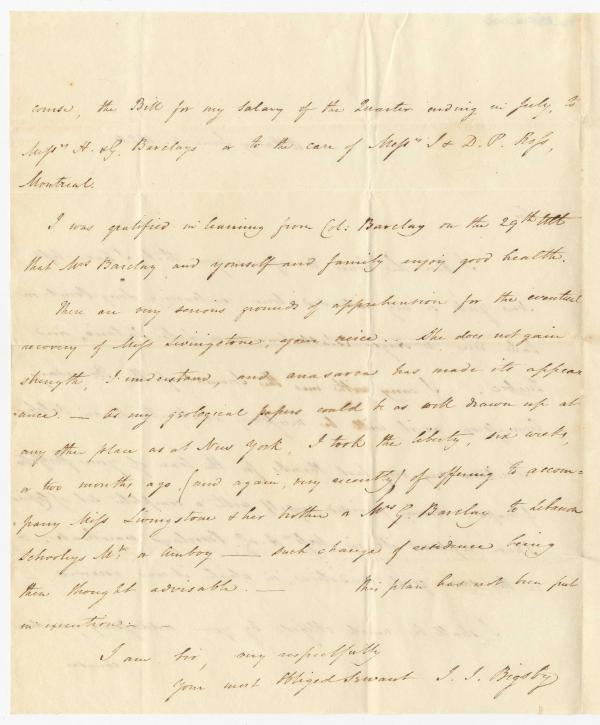 course, the Bill for my salary of the Quarter ending in July, to
Messrs H. & G. Barclays or to the care of Messrs J & D. P. Ross,
Montreal.
I was gratified in learning from Col. Barclay on the 29th ult
that Mrs Barclay and yourself and family enjoy good health.
There are very serious grounds of apprehension for the eventual
recovery of Miss Livingstone, your niece. - She does not gain
strength, I understand, and anasarca has made its appear
-ance. - As my geological papers could be as well drawn up at
any other place as at New York, I took the liberty, six weeks,
or two months, ago (and again, very recently) of offering to accom=
pany Miss Livingstone & her brother or Mrs G. Barclay to Lebanon
Schooleys Mt. or Amboy — such change of residence being
then thought advisable. — This plan has not been put
in execution. -
I am Sir, very respectfully
Your most Obliged Servant J. J. Bigsby